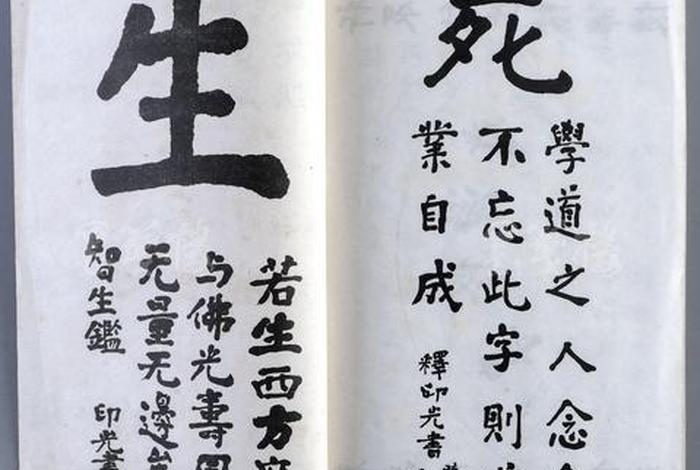 死
學道之人念
不忘此字則
業自成
釋印光書
生
若生西方
与佛光壽
无量无邊
智生鑑
印光書